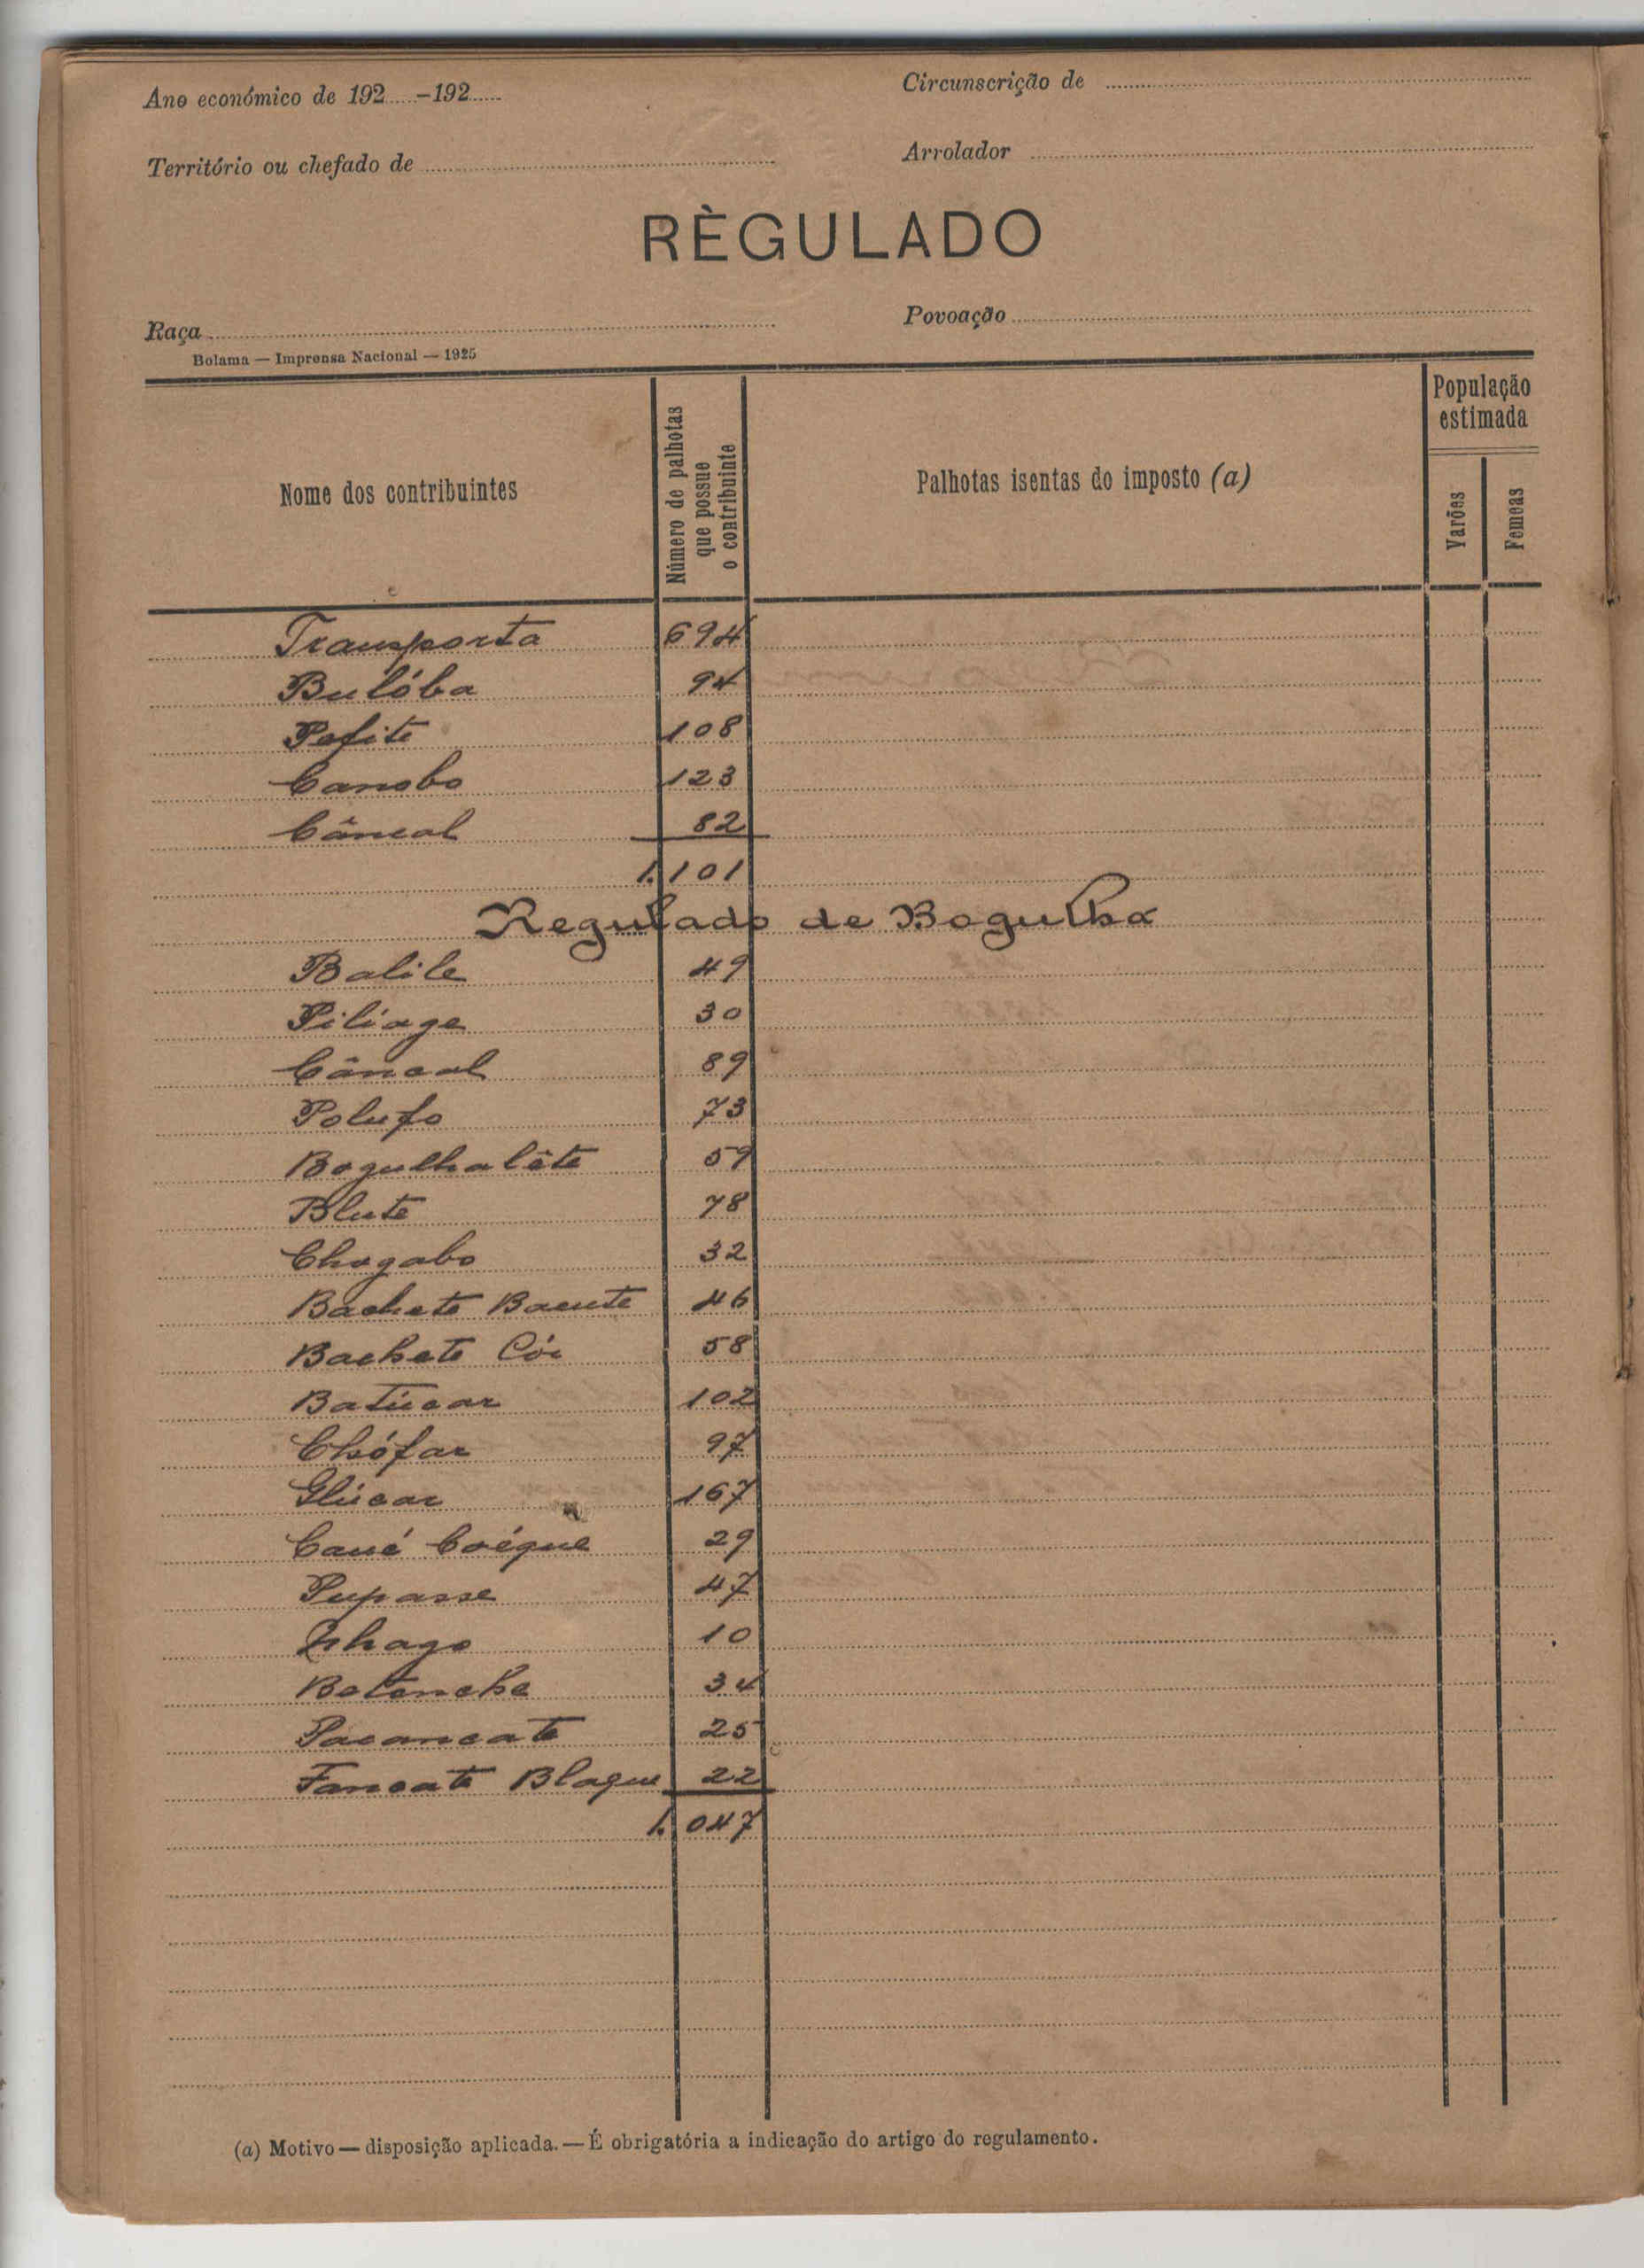 Ano económico de 192.....-192.....
Circunscrição de
Território ou chefado de
Arrolador
RÈGULADO
Raça
Povoação
Bolama — Imprensa Nacional — 1925
Nome dos contribuintes
Número de palhotas que possue o contribuinte
Palhotas isentas do imposto (a)
População estimada
Varões
Femeas
Transporta 694
Bulóba 94
Pefite 108
Canobo 123
Câncal 82
1.101
Regulado de Bogulha
Balile 49
Piliage 30
Câncal 89
Polufo 73
Bogulha lête 59
Blute 78
Chogabo 32
Bachete Baente 46
Bachete Cór 58
Batúcar 102
Chófar 97
Glúcar 167
Caué Coéque 29
Pupasse 47
Nhago 10
Betenche 34
Pacancate 25
Fancate Blaque 22
1.047
(a) Motivo — disposição aplicada. — É obrigatória a indicação do artigo do regulamento.